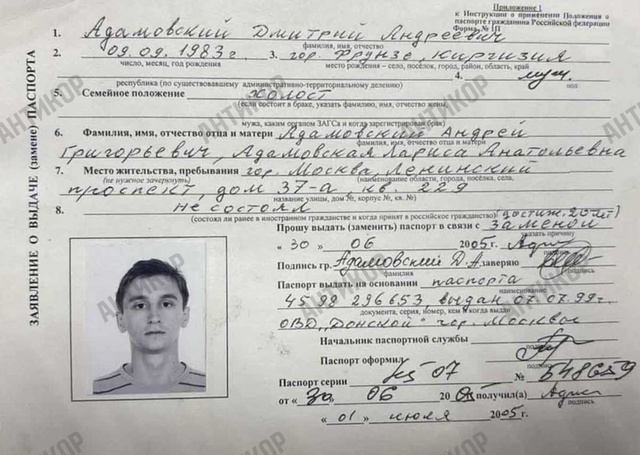 Приложение 1
к Инструкции о применении Положения о
паспорте гражданина Российской федерации
Форма № 1П
ЗАЯВЛЕНИЕ О ВЫДАЧЕ (замене) ПАСПОРТА
1. Адамовский Дмитрий Андреевич
фамилия, имя, отчество
2. 09.09.1983г. 3. гор. Фрунзе, Киргизия
число, месяц, год рождения место рождения – село, посёлок, город, район, область, край
4. муж.
республика (по существовавшему административно-территориальному делению) пол
5. Семейное положение холост
(если состоит в браке, указать фамилию, имя, отчество жены,
мужа, каким органом ЗАГСа и когда зарегистрирован брак)
6. Фамилия, имя, отчество отца и матери Адамовский Андрей
фамилия, имя, отчество
Григорьевич, Адамовская Лариса Анатольевна
7. Место жительства, пребывания гор. Москва, Ленинский
(не нужное зачеркнуть) (наименование области, города, посёлка, села,
проспект, дом 37-а, кв. 229
название улицы, дом №, корпус №, кв. №)
8. не состоял
(состоял ли ранее в иностранном гражданстве и когда принят в российское гражданство)
(достиж. 20 лет)
Прошу выдать (заменить) паспорт в связи с заменой
указать причину
« 30 » 06 2005г.
Подпись гр. Адамовский Д.А. заверяю
фамилия подпись
Паспорт выдать на основании паспорта
наименование
4599 296653 выдан 07.07.99г.
документа, серия, номер, кем и когда выдан
ОВД „Донской" гор. Москвы
Начальник паспортной службы
Паспорт оформил
подпись
Паспорт серии 45 07 № 548659
от « 30 » 06 2005 получил(а)
подпись
« 01 » июля 2005г.
АНТИКОР